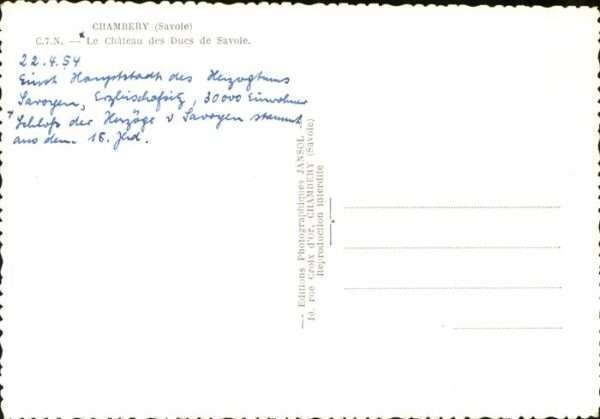 CHAMBERY (Savoie)
C.7.N. — * Le Château des Ducs de Savoie.
22.4.54
Einst Hauptstadt des Herzogtums
Savoyen, Erzbischofsitz, 30000 Einwohner
* Schloß der Herzöge v Savoyen stammt
aus dem 18. Jhd.
— Editions Photographiques JANSOL —
10, rue Croix d'Or, CHAMBERY (Savoie)
Reproduction interdite